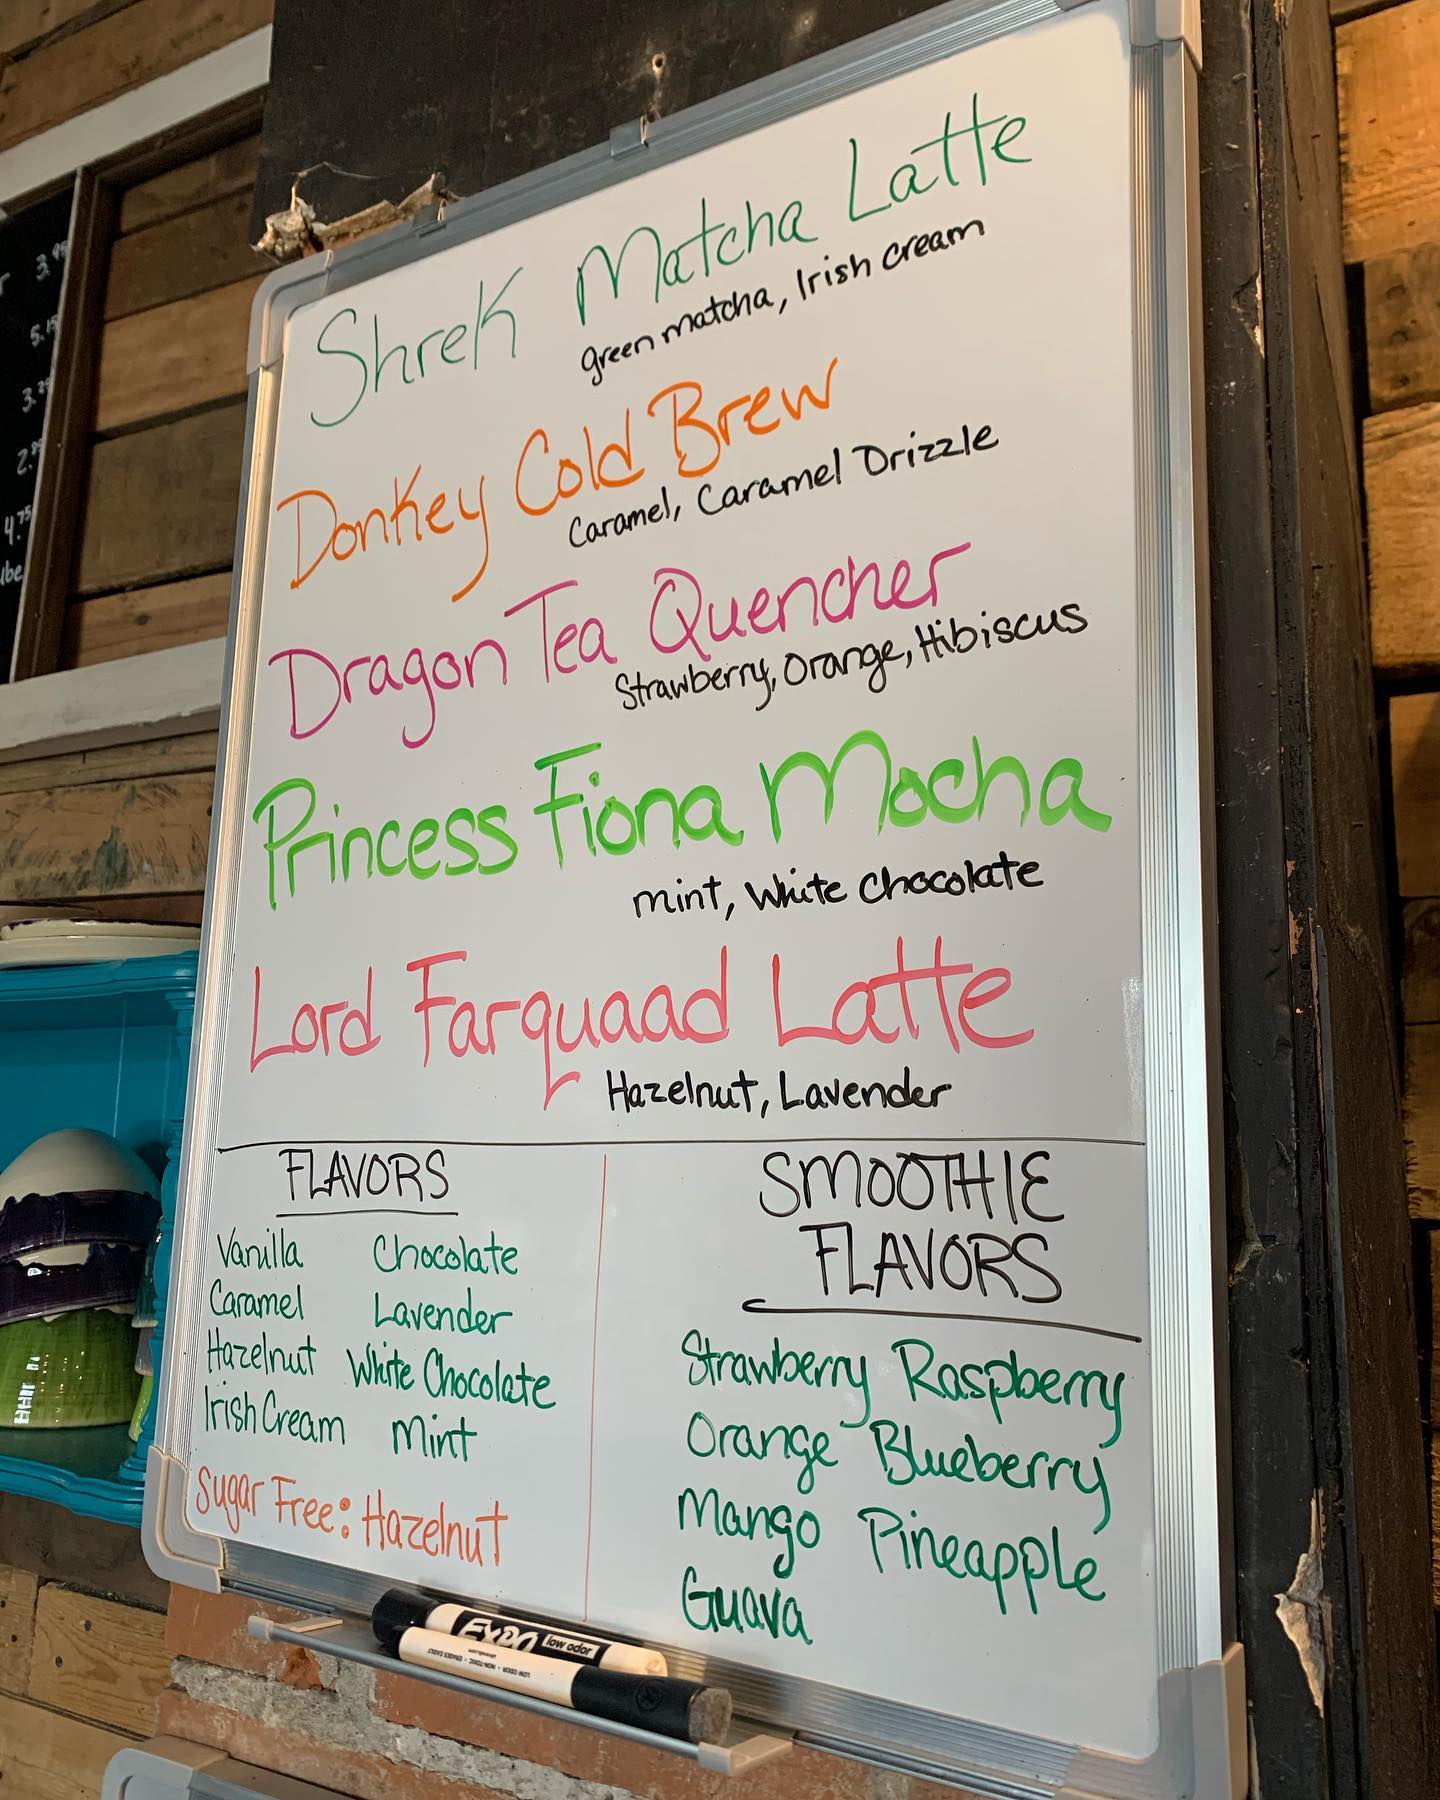 Shrek Matcha Latte
green matcha, Irish cream
Donkey Cold Brew
Caramel, Caramel Drizzle
Dragon Tea Quencher
Strawberry, Orange, Hibiscus
Princess Fiona Mocha
mint, White Chocolate
Lord Farquaad Latte
Hazelnut, Lavender
FLAVORS
Vanilla Chocolate
Caramel Lavender
Hazelnut White Chocolate
Irish Cream Mint
Sugar Free: Hazelnut
SMOOTHIE
FLAVORS
Strawberry Raspberry
Orange Blueberry
Mango Pineapple
Guava
EXPO low odor
3.95
5.15
4.75